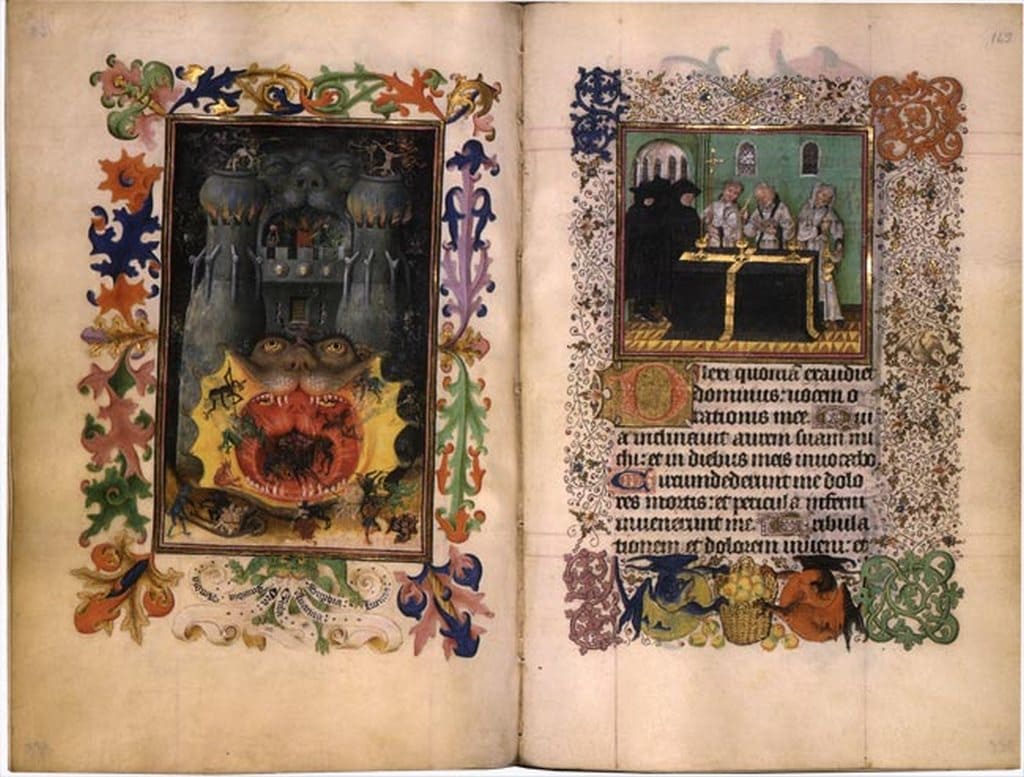 169
Dilexi quoniā exaudiet
dominus: uocem o
rationis mee. Qui
a inclinauit aurem suam mi
chi: et in diebus meis inuocabo.
Circumdederunt me dolo
res mortis: et pericula inferni
inuenerunt me. Tribula
tionem et dolorem inueni: et